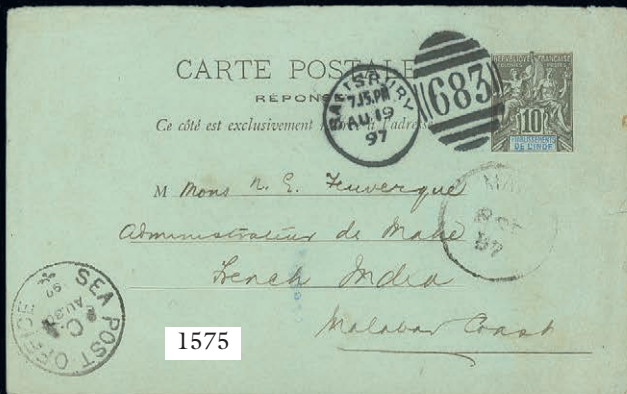 CARTE POSTALE
RÉPONSE
Ce côté est exclusivement à l'adresse
SALISBURY
7.15.PM
AU 19
97
683
RÉPUBLIQUE FRANÇAISE
COLONIES POSTES
10
ÉTABLISSEMENTS
DE L'INDE
M Mons N. E.
Administrateur de Mahé
French India
Malabar Coast
SEA POST OFFICE
C
AU
97
1575